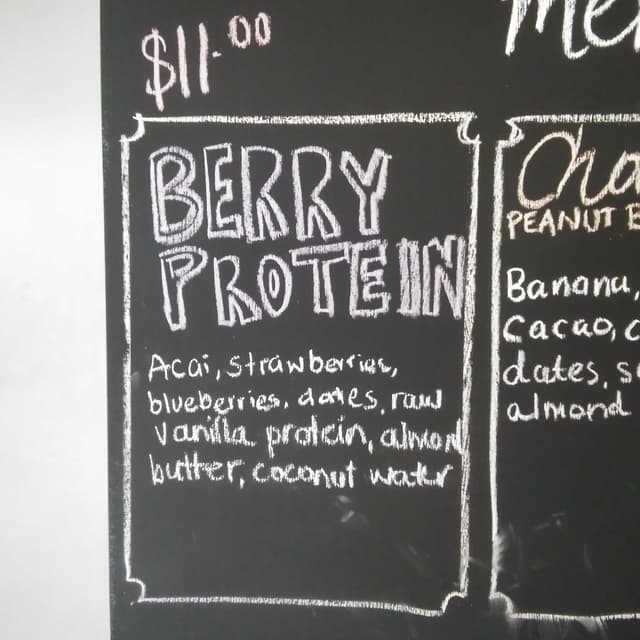 $11.00
BERRY
PROTEIN
Acai, strawberries,
blueberries, dates, raw
vanilla protein, almond
butter, coconut water
PEANUT
Banana,
Cacao,
dates,
almond